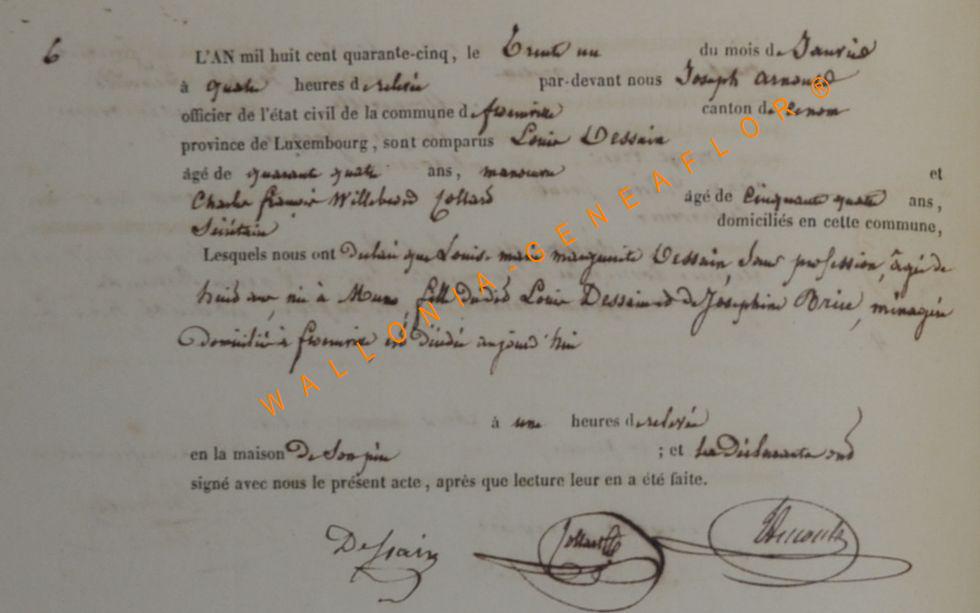 6 L'AN mil huit cent quarante-cinq, le Trente un du mois de Janvier
à quatre heures de relevée par-devant nous Joseph Arnould
officier de l'état civil de la commune de canton de
province de Luxembourg, sont comparus Louis Dessain
âgé de quarante quatre ans, manœuvre et
Charles françois Willebrord Collard âgé de Cinquante quatre ans,
Sécrétaire domiciliés en cette commune,
Lesquels nous ont Déclaré que Louise marie marguerite Dessain, sans profession, âgée de
huit ans, née à Muno fille dudit Louis Dessain et de Joséphine Brice, ménagère
Domiciliée à est Décédée aujourd'hui
à une heures de relevée
en la maison De son père ; et les Déclarants ont
signé avec nous le présent acte, après que lecture leur en a été faite.
Dessain Collard Arnould
WALLONIA-GENEAFLOR®